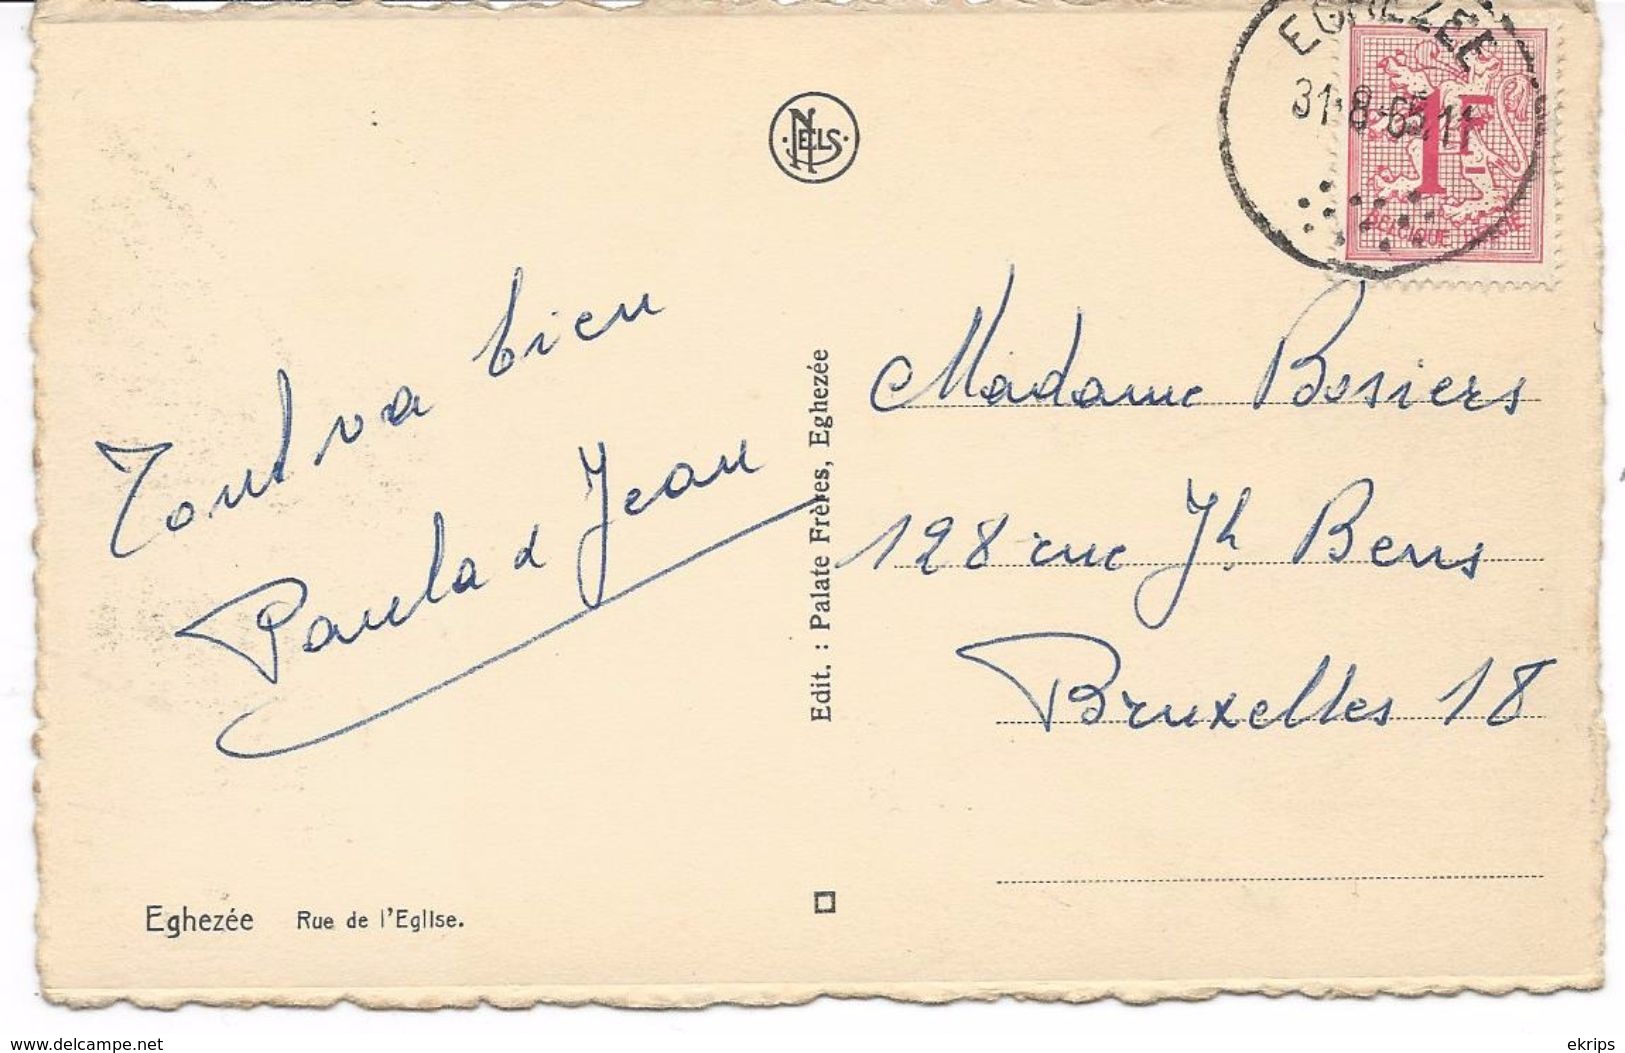 EGHEZEE
31-8-65.11
1F
BELGIQUE BELGIE
NELS
Tout va bien
Paula & Jean
Edit. : Palate Frères, Eghezée
Madame Bosiers
128 rue Jh Bens
Bruxelles 18
Eghezée Rue de l'Eglise.
www.delcampe.net
ekrips